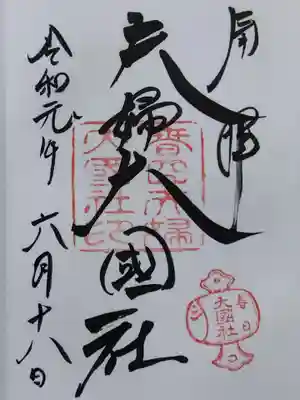 奉拝
夫婦大國社
令和元年 六月十八日
春日夫婦
大國社印
春日
大國社